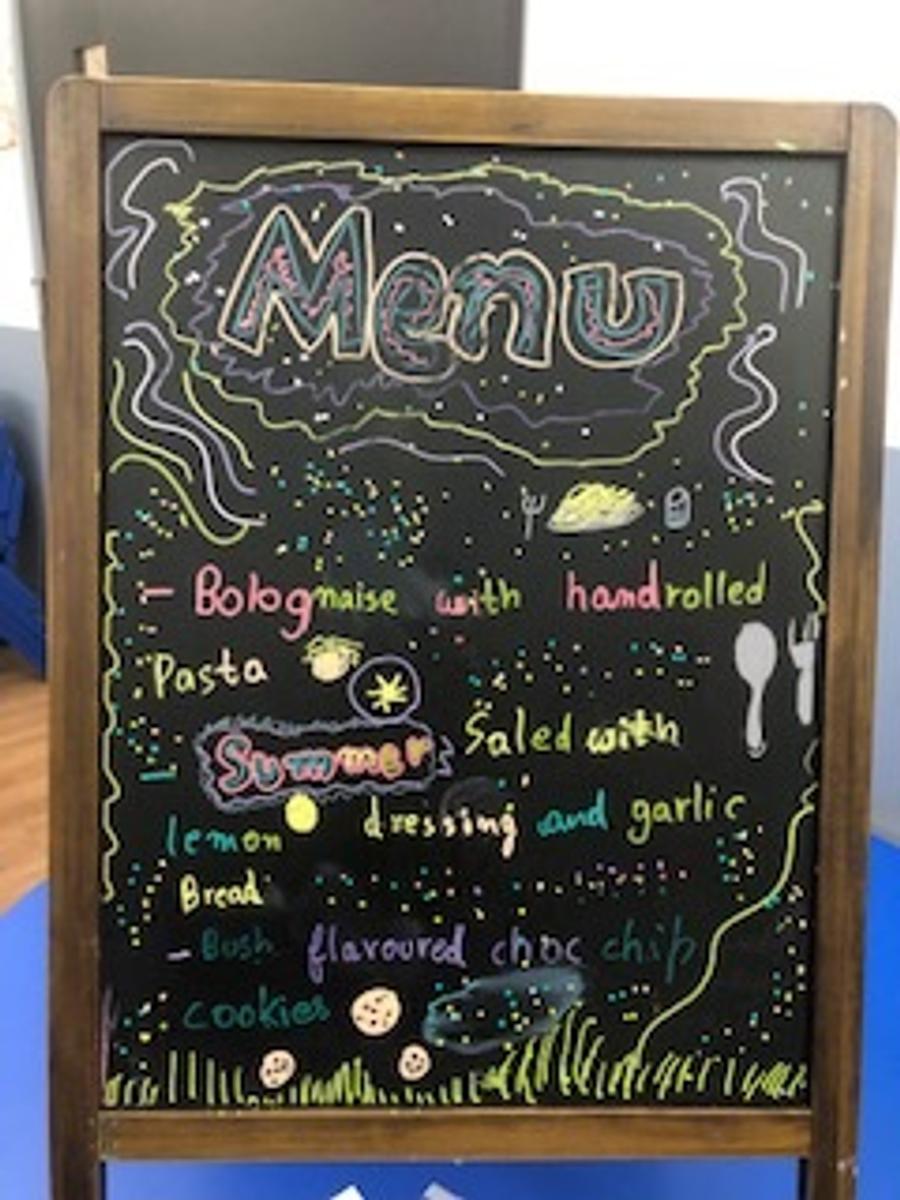 Menu
- Bolognaise with handrolled
Pasta
- Summer Saled with
lemon dressing and garlic
Bread
- Bush flavoured choc chip
cookies